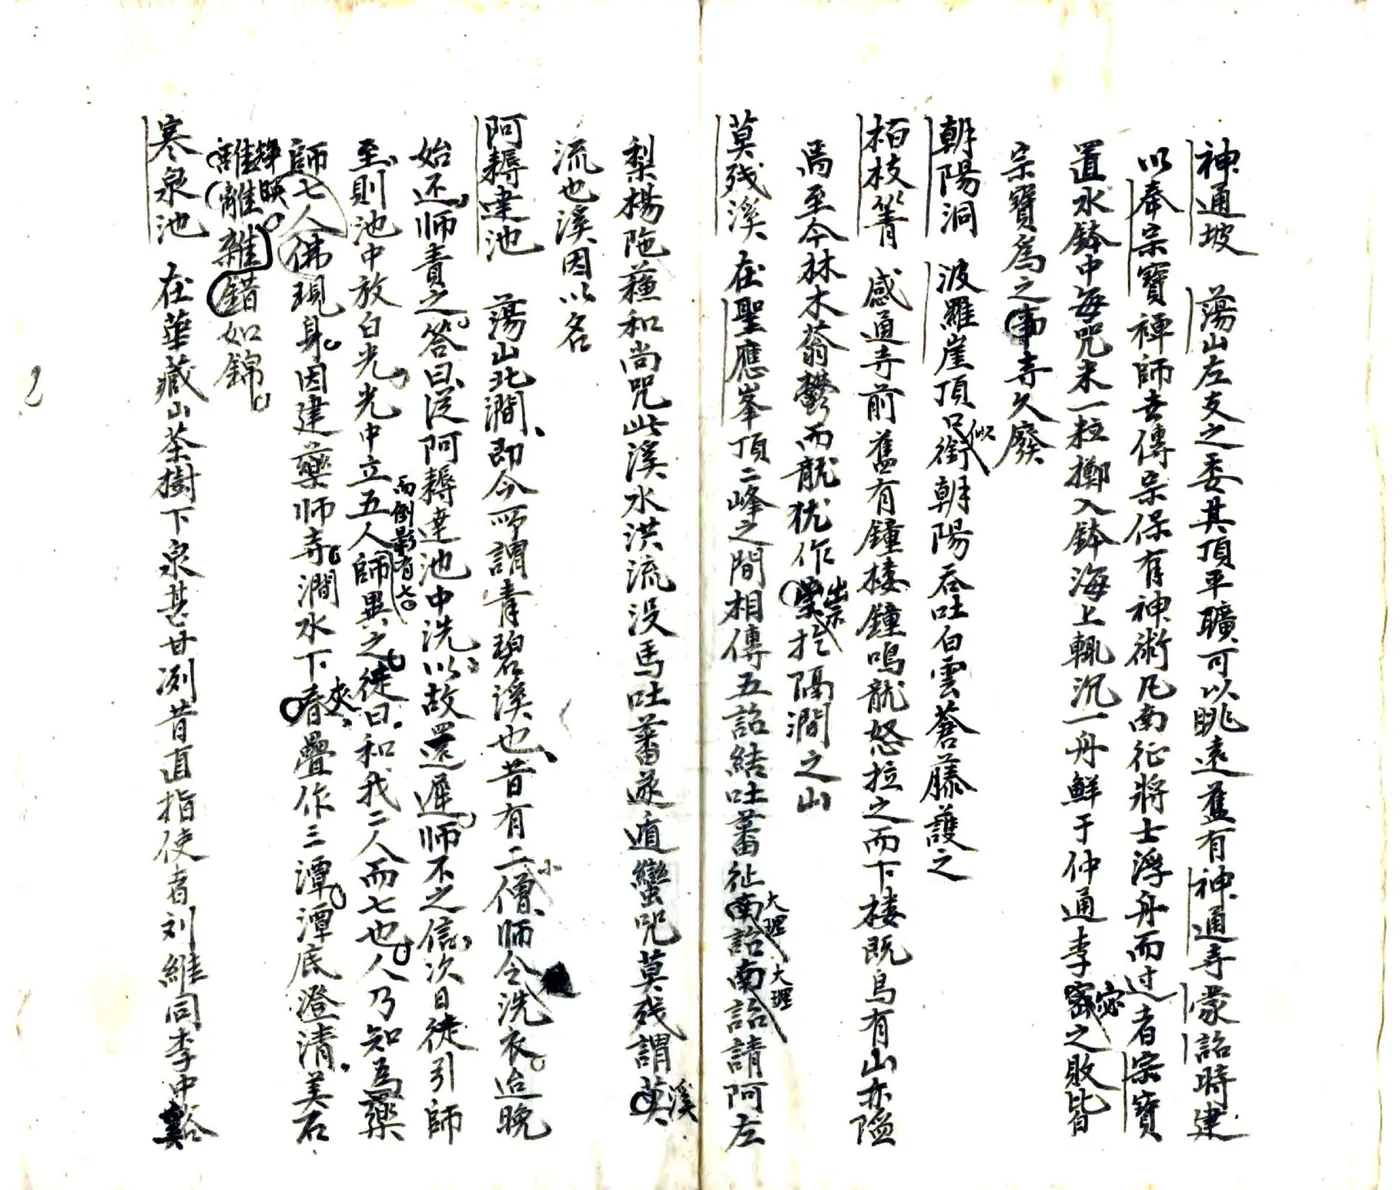 神通坡 蕩山左支之委其頂平曠可以眺遠舊有神通寺蒙詔時建
以奉宗寶禪師去傳宗保有神術凡南征將士浮舟而过者宗寶
置水鉢中每咒米一粒擲入鉢海上輒沉一舟鮮于仲通李宓之敗皆
宗寶為之寺久廢
朝陽洞 波羅崖頂口似銜朝陽吞吐白雲蒼藤護之
栢枝箐 感通寺前舊有鐘楼鐘鳴龍怒拉之而下楼既烏有山亦隘
焉至今林木蓊鬱而龍犹作出祟於隔澗之山
莫残溪 在聖應峯頂二峰之間相傳五詔結吐蕃征大理大理請阿左
梨楊陁蘓和尚咒此溪水洪流没馬吐蕃遂遁蠻咒莫残謂溪
流也溪因以名
阿耨達池 蕩山北澗即今所謂青碧溪也昔有二小僧師令洗衣迨晚
始还師責之答曰從阿耨達池中洗以故還遲師不之信次日徒引師
至則池中放白光光中立五人而倒影有七師異之徒曰和我二人而七也人乃知為藥
師七佛現身因建藥师寺澗水下夾疊作三潭潭底澄清美石
輝映離錯如錦
寒泉池 在華藏山茶樹下泉甚甘冽昔直指使者刘維同李中谿
2